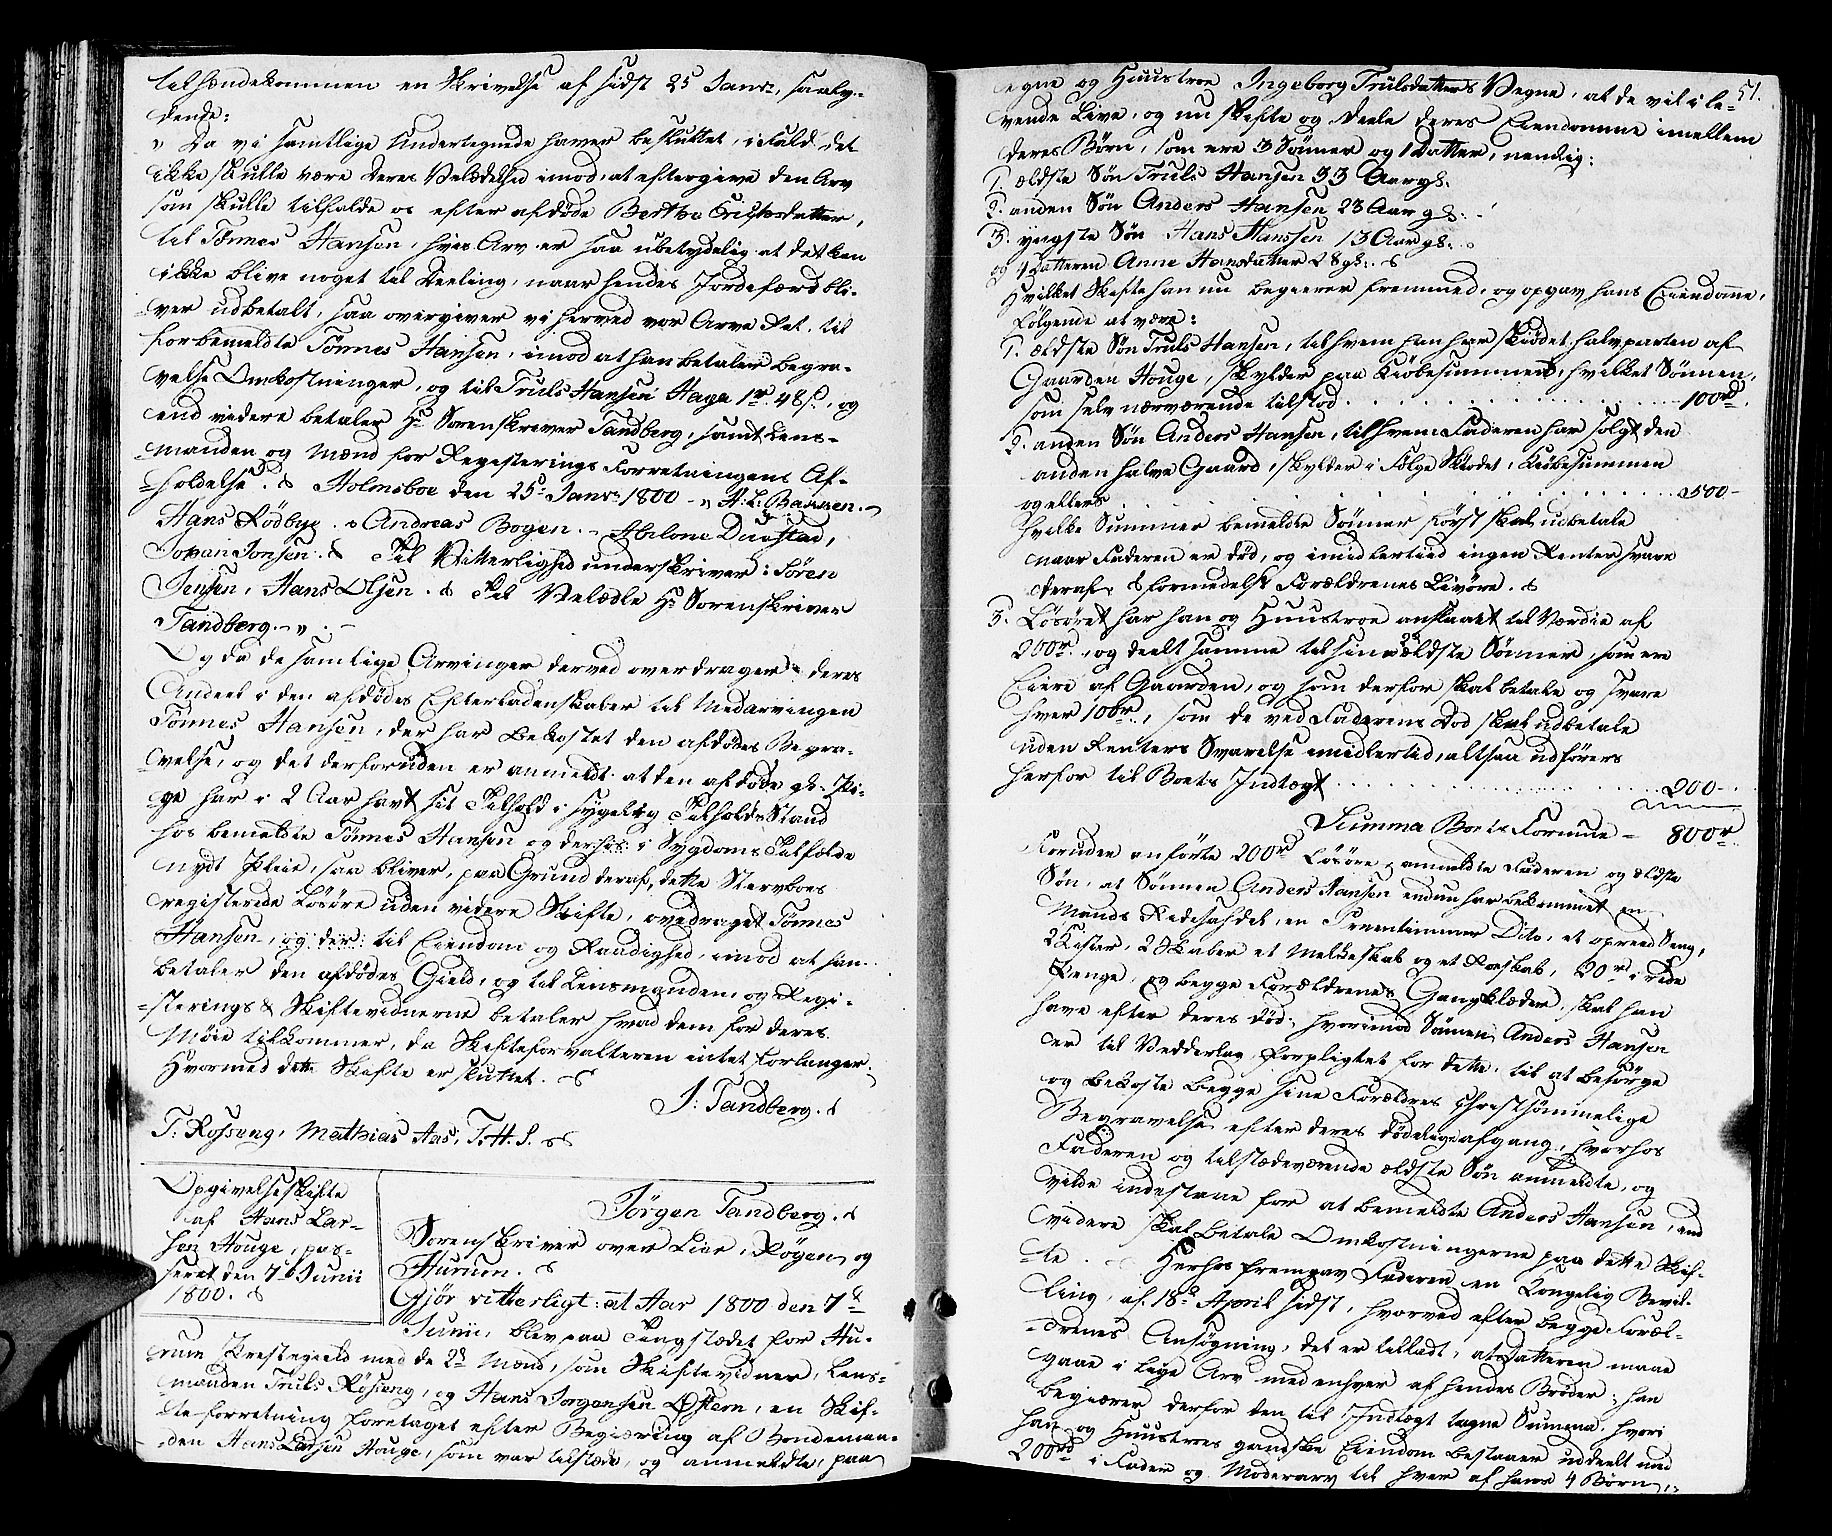 tilhændekommen en Skrivelse af sidst 25 Janr., saaly-
dende:
"Da vi samtlige Undertegnede haver besluttet, ifald det
ikke skulle være Deres Velædelhed imod, at eftergive den Arv
som skulle tilfalde os efter afdøde Berthe
til Tønnes Hansen, hvis Arv er saa ubetydelig at det kan
ikke blive noget til Deeling, naar hendes Jordefærd bli-
ver udbetalt, saa overgiver vi herved vor Arve Ret til
forbemeldte Tønnes Hansen, imod at han betaler Begra-
velse Omkostninger, og til Truls Hansen Haga 1 48 s., og
end videre betaler Hr. Sorenskriver Tandberg, samt Lens-
manden og Mænd for Registerings Forretningens Af-
holdelse. Holmsboe den 25d Janr. 1800 - "
Hans Rödbye. Andreas Bogen.
Johan Jonsen. Til Vitterlighed underskriver: Søren
Jensen, Hans Olsen. Til Velædle Hr. Sorenskriver
Tandberg. "
Og da de samtlige Arvinger derved overdrager deres
Andeel i den afdødes Efterladenskaber til Medarvingen
Tönnes Hansen, der har bekostet den afdødes Begra-
velse, og det derforuden er anmeldt at den afdøde gl. Pi-
ge har i 2 Aar havt sit Tilhold i sygelig Tilholds Stand
hos bemeldte Tönnes Hansen og der i Sygdoms Tilfælde
nydt Pleie, saa bliver, paa Grund deraf, dette Stervboes
registerede Løsøre uden videre Skifte, overdraget Tönnes
Hansen, til Eiendom og Raadighed, imod at han
betaler den afdødes Gield, og til Lensmanden, og Regi-
sterings & Skiftevidnerne betaler hvad dem for deres
Møie tilkommer, da Skifteforvalteren intet forlanger.
Hvormed dette Skifte er sluttet.
J. Tandberg.
T. Rossung, Mathias Aas, T.H.S.
Opgivelseskifte
af Hans Lar-
sen Houge, pas-
seret den 7d Junii
1800.
Jörgen Tandberg.
Sorenskriver over Lier, Røgen og
Hurum.
Gjør vitterligt: at Aar 1800 den 7d
Junii, blev paa Tingstædet for Hu-
rum Præstegield med de 2de Mænd, som Skiftevidner, Lens-
manden Truls Rösung, og Hans Jorgensen Östern, en Skif-
te forretning foretaget efter Begiæring af Bondeman-
den Hans Larsen Houge, som var tilstæde, og anmeldte, paa
51.
egne og Huustroe Ingeborg Trulsdatters Vegne, at de vil i le-
vende Live, og nu skifte og deele deres Eiendomme imellem
deres Børn, som ere 3 Sønner og 1 Datter, nemlig:
1. ældste Søn Truls Hansen 33 Aar gl.
2. anden Søn Anders Hansen 23 Aar gl.
3. yngste Søn Hans Hanssen 13 Aar gl.
og 1 Datteren Anne Hansdatter 28 gl.
Hvilket Skifte han nu begierer fremmed, og opgav hans Eiendomme,
følgende at være:
1. ældste Søn Truls Hansen, til hvem han har skiødet halvparten af
Gaarden Houge, skylder paa Kiøbesummen, hvilket Sønnen,
som selv nærværende tilstod . . . . . . 100rd.
2. anden Søn Anders Hansen, til hvem Faderen har solgt den
anden halve Gaard, skylder i Følge Skiødet, Kiøbesummen
og ellers . . . . . . 500 -
hvilke Summer bemeldte Sønner først skal udbetale
naar Faderen er død, og imidlertiid ingen Renter svare
deraf, formedelst Forældrenes Livøre.
3. Løsøret har han og Huustroe anslaaet til Værdie af
200rd., og deelt samme til sine 2de ældste Sønner, som ere
Eiere af Gaarden, og som derfor skal betale og svare
hver 100rd., som de ved Faderens Død skal udbetale
uden Renters Svarelse imidlertid, altsaa udføres
herfor til Boets Indtægt . . . . . . 200 -
Summa Boets Formue - 800rd.
Foruden anførte 200rd. Løsøre, anmeldte Faderen og ældste
Søn, at Sønnen Anders Hansen endnu har bekommet en
Mands Ridesahdel, en Fruentimmer Dito, et opreed Seng,
2 Kister, 2 Skaber et Melkeskab og et Roskab, 20rd. i rede
Penge, og begge Forældrenes Gangklæder, skal han
have efter deres Død; hvorimod Sønnen, Anders Hansen
er til Vedderlag forpligtet for dette, til at besørge
og bekoste begge sine Forældres christsømmelige
Begravelse efter deres dødelige afgang, hvorhos
Faderen og tilstædeværende ældste Søn anmeldte, og
vilde indestaae for at bemeldte Anders Hansen, end
videre skal betale Omkostningerne paa dette Skif-
te. Herhos fremgav Faderen en Kongelig Bevil-
ling, af 18d April sidst, hvorved efter begge Foræl-
drenes Ansøgning, det er tilladt, at Datteren maae
gaae i lige Arv med enhver af hendes Brødre; han
begiærer derfor den til Indtægt tagne Summa, hvori
han og Huustroes gandske Eiendom bestaaer uddeelt med
200rd i Fader og Moderarv til hver af hans 4 Børn,